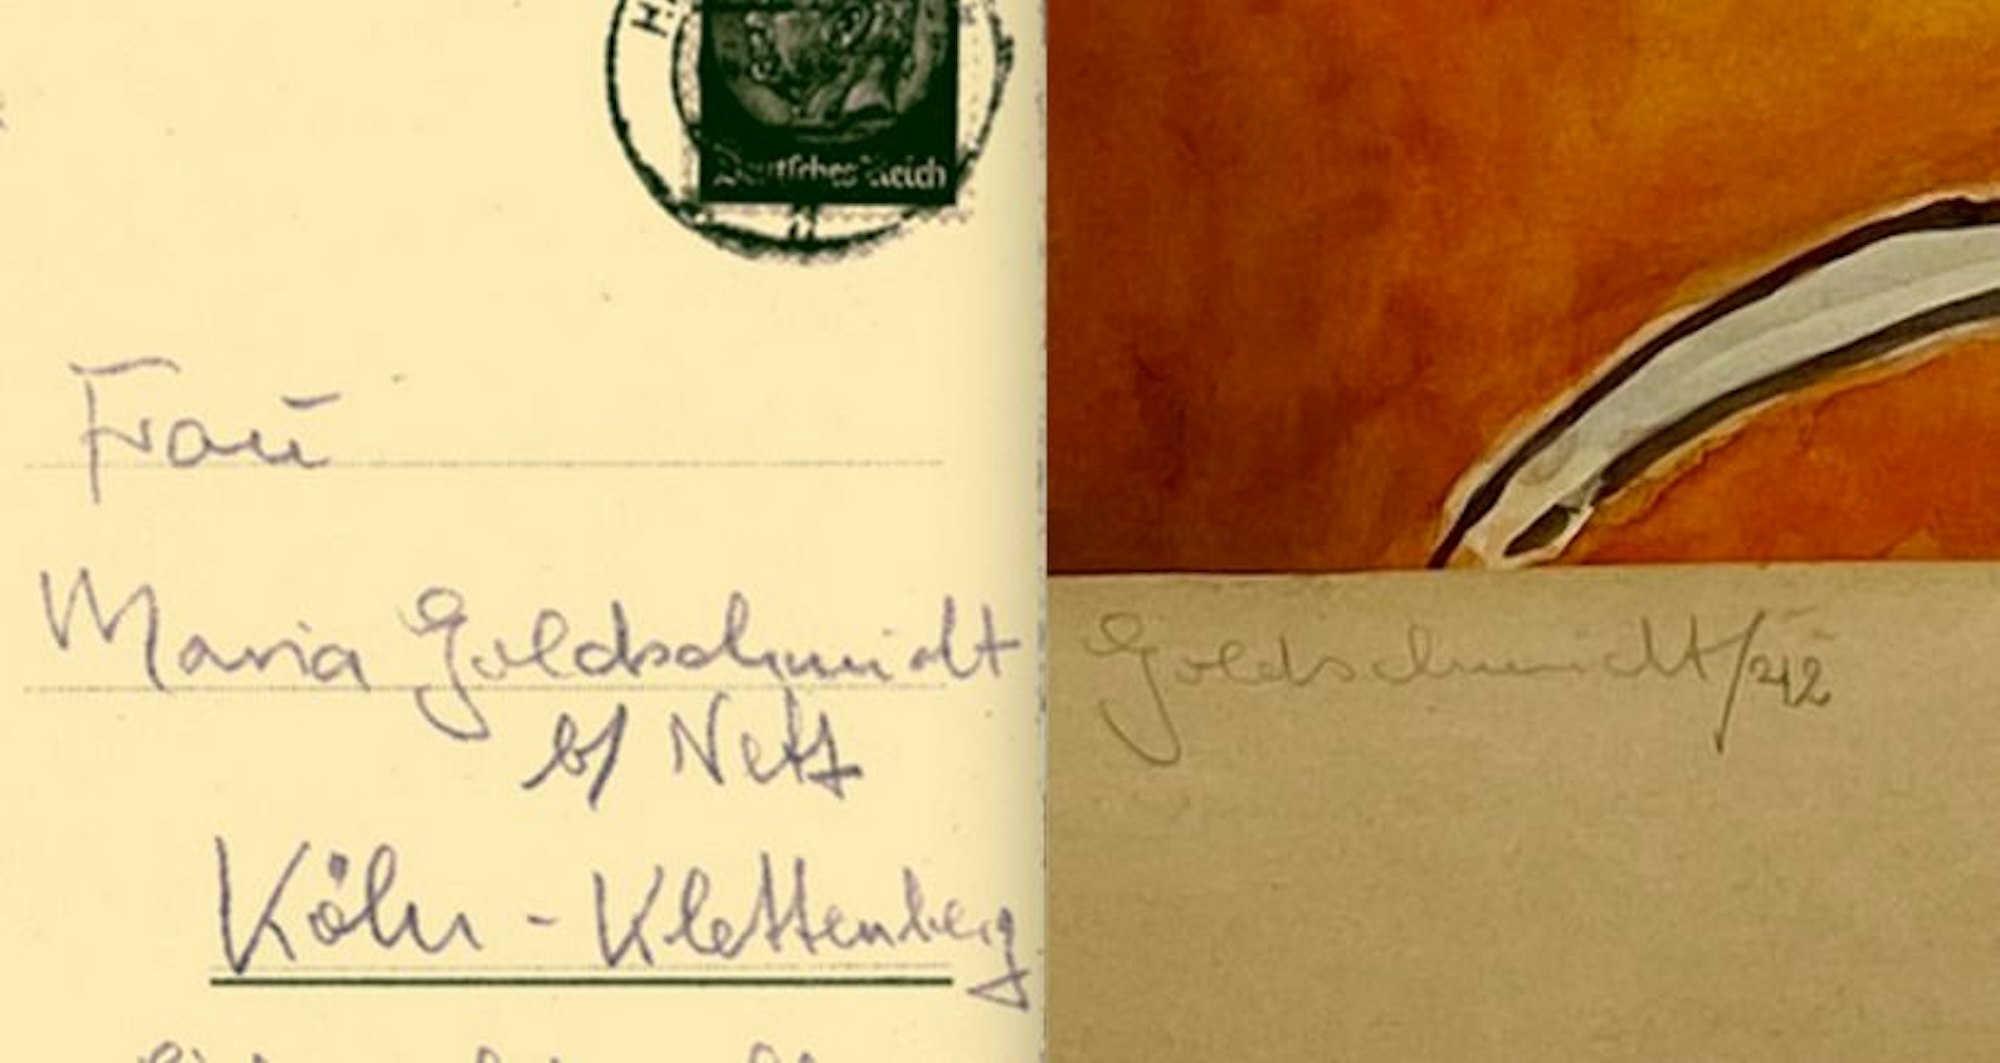 Deutsches Reich
Frau
Maria Goldschmidt
b/ Nett
Köln - Klettenberg
Goldschmidt/212